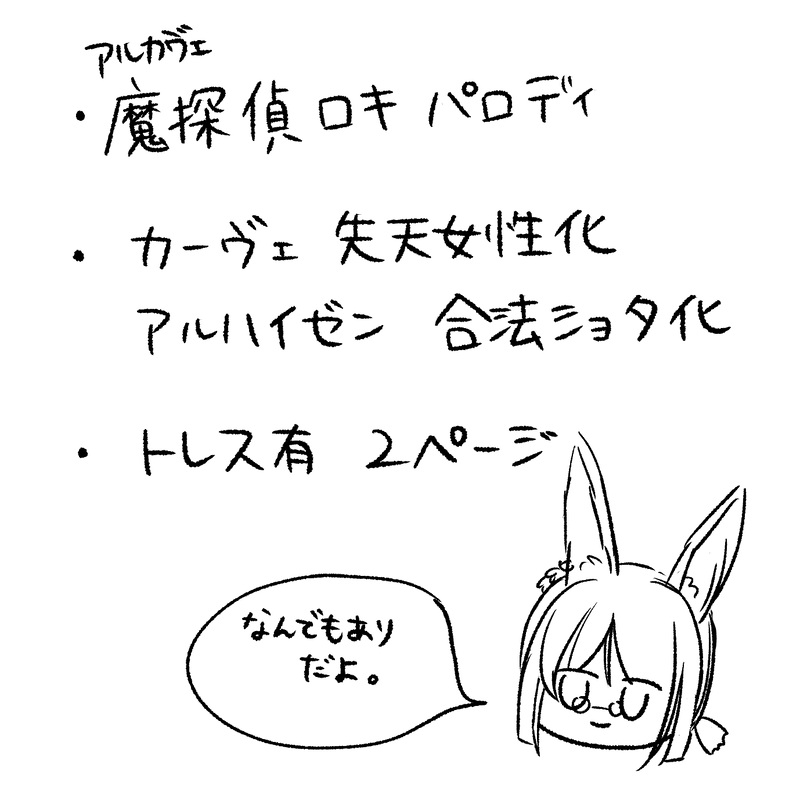 アルカヴェ
・魔探偵ロキ パロディ
・カーヴェ 先天女性化
アルハイゼン 合法ショタ化
・トレス有 2ページ
なんでもあり
だよ。